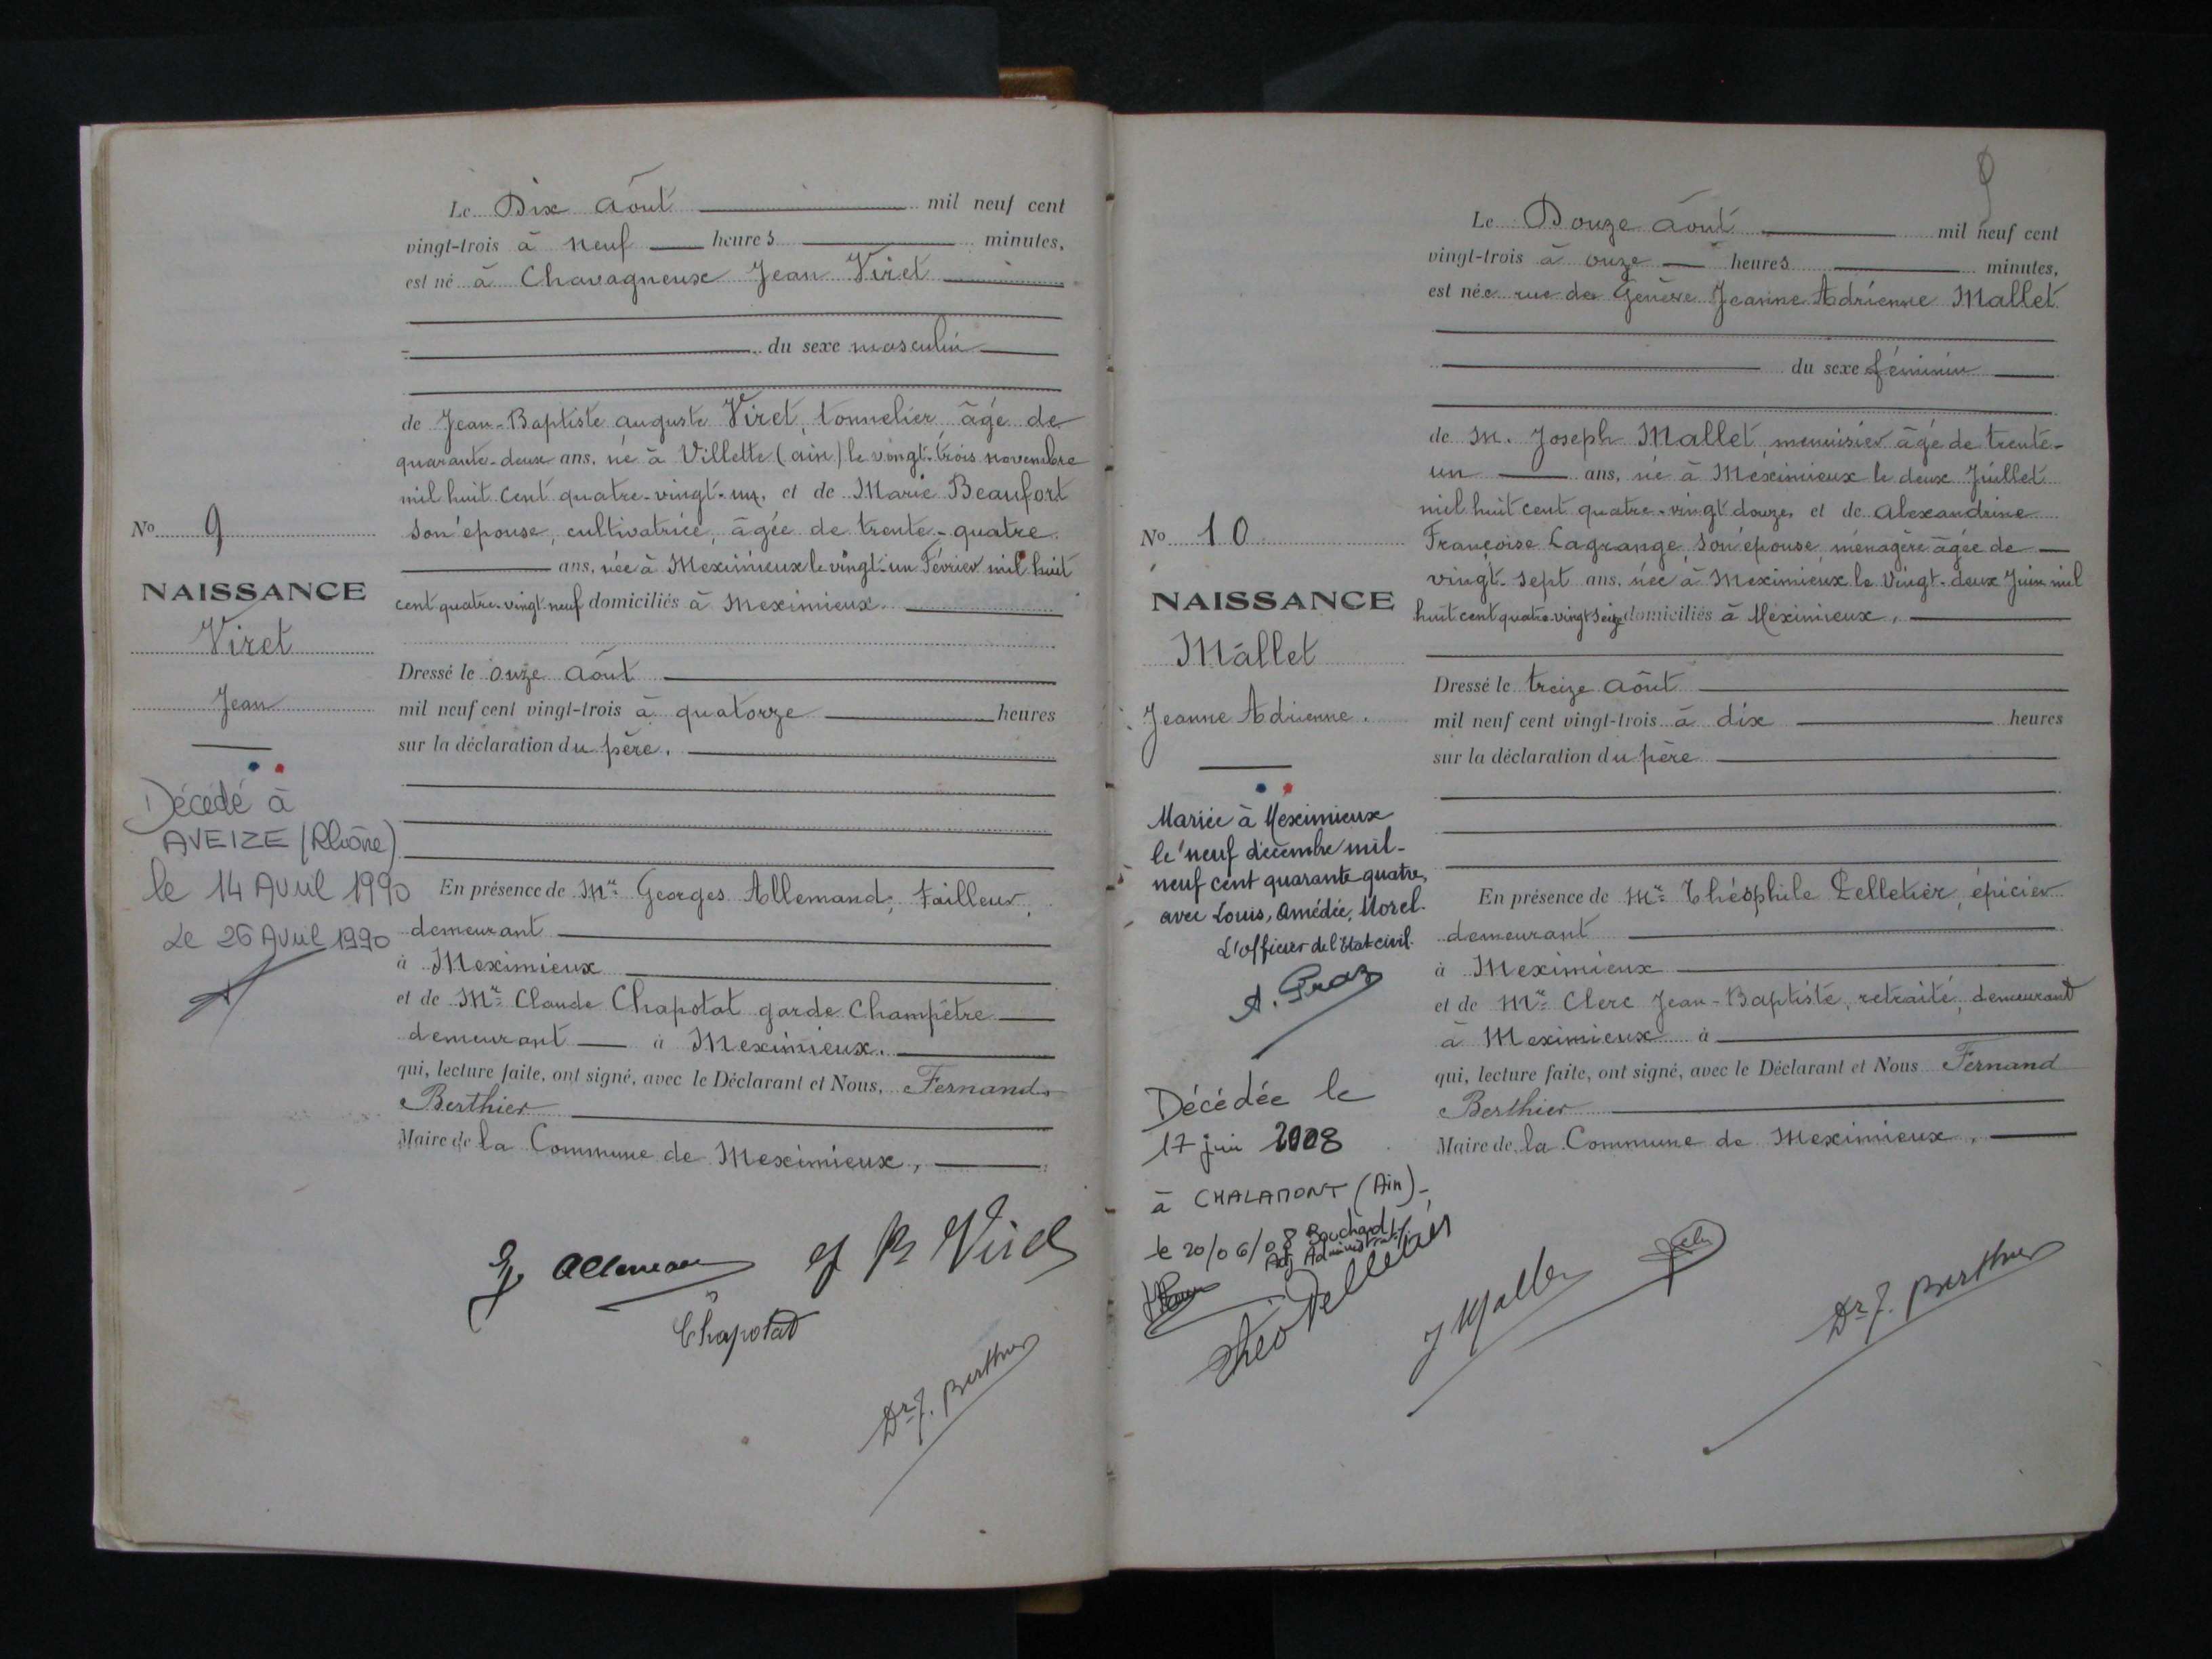 Le Dix Août mil neuf cent
vingt-trois à neuf heures minutes,
est né à Chavagneux Jean Viret
du sexe masculin
de Jean-Baptiste auguste Viret, tonnelier, âgé de
quarante-deux ans, né à Villette (ain) le vingt-trois novembre
mil huit cent quatre-vingt-un, et de Marie Beaufort
son épouse, cultivatrice, âgée de trente-quatre
ans, née à Meximieux le vingt-un Février mil huit
cent quatre-vingt neuf domiciliés à Meximieux.
Dressé le onze Août
mil neuf cent vingt-trois à quatorze heures
sur la déclaration du père.
En présence de Mr Georges Allemand, tailleur,
demeurant
à Meximieux
et de Mr Claude Chapotat garde Champêtre
demeurant à Meximieux.
qui, lecture faite, ont signé, avec le Déclarant et Nous, Fernand
Berthier
Maire de la Commune de Meximieux,
No 9
NAISSANCE
Viret
Jean
Décédé à
AVEIZE (Rhône)
le 14 Avril 1990
Le 26 Avril 1990
Viret
Chapotat
Dr F. Berthier
9
Le Douze Août mil neuf cent
vingt-trois à onze heures minutes,
est née rue de Genève Jeanne Adrienne Mallet
du sexe féminin
de M. Joseph Mallet, menuisier âgé de trente-
un ans, né à Meximieux le deux Juillet
mil huit cent quatre-vingt douze, et de Alexandrine
Françoise Lagrange, son épouse, ménagère âgée de
vingt-sept ans, née à Meximieux le Vingt-deux Juin mil
huit cent quatre-vingt seize domiciliés à Meximieux,
Dressé le treize Août
mil neuf cent vingt-trois à dix heures
sur la déclaration du père
En présence de Mr Théophile Pelletier, épicier
demeurant
à Meximieux
et de Mr Clerc Jean-Baptiste, retraité, demeurant
à Meximieux à
qui, lecture faite, ont signé, avec le Déclarant et Nous Fernand
Berthier
Maire de la Commune de Meximieux,
No 10
NAISSANCE
Mallet
Jeanne Adrienne.
Mariée à Meximieux
le neuf décembre mil-
neuf cent quarante quatre,
avec Louis, Amédée, Morel.
L'officier de l'état civil.
Décédée le
17 juin 2008
à CHALAMONT (Ain)-
le 20/06/08 Bouchard
Adj Administratif
Theo Pelletier
J Mallet
Dr F. Berthier